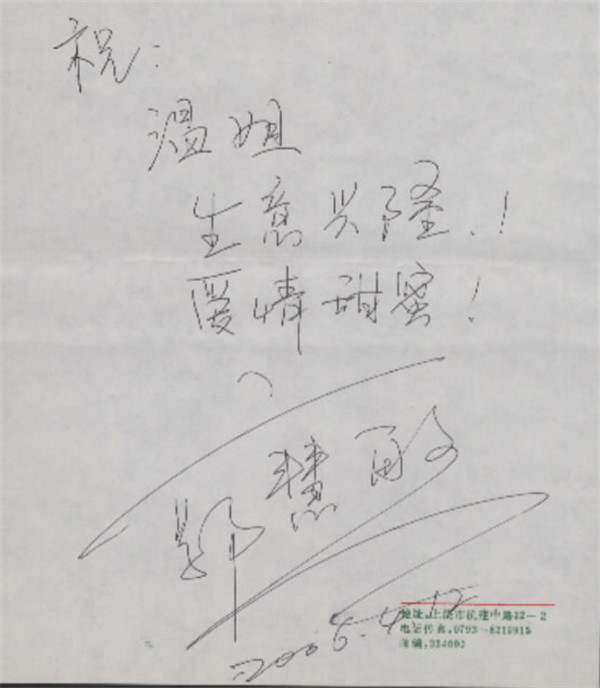 祝:
温姐
生意兴隆!
爱情甜蜜!
郭慧敏
2006.4.12
地址:上饶市抗建中路22-2
电话传真:0793-8219915
邮编:334000